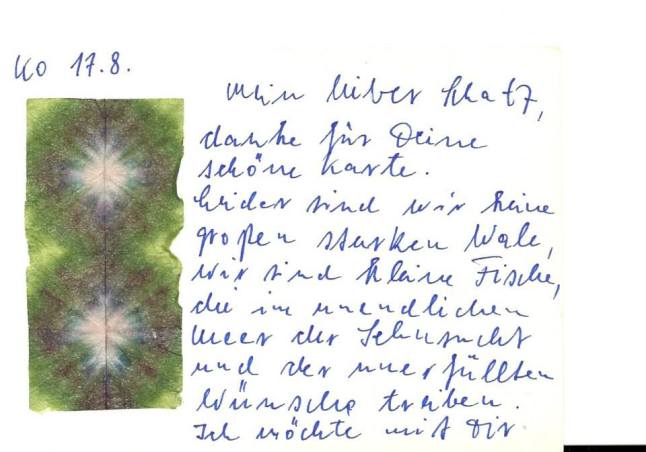 KO 17.8.
Mein lieber Schatz,
danke für Deine
schöne Karte.
Leider sind wir keine
großen starken Wale,
wir sind kleine Fische,
die im unendlichen
Meer der Sehnsucht
und der unerfüllten
Wünsche treiben.
Ich möchte mit Dir